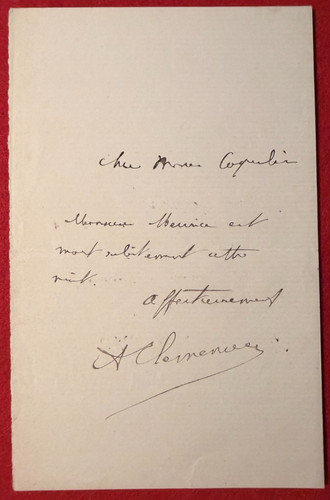 Cher Monsieur Coquelin
Monsieur Meurice est
mort subitement cette
nuit.
Affectueusement
A Clemenceau